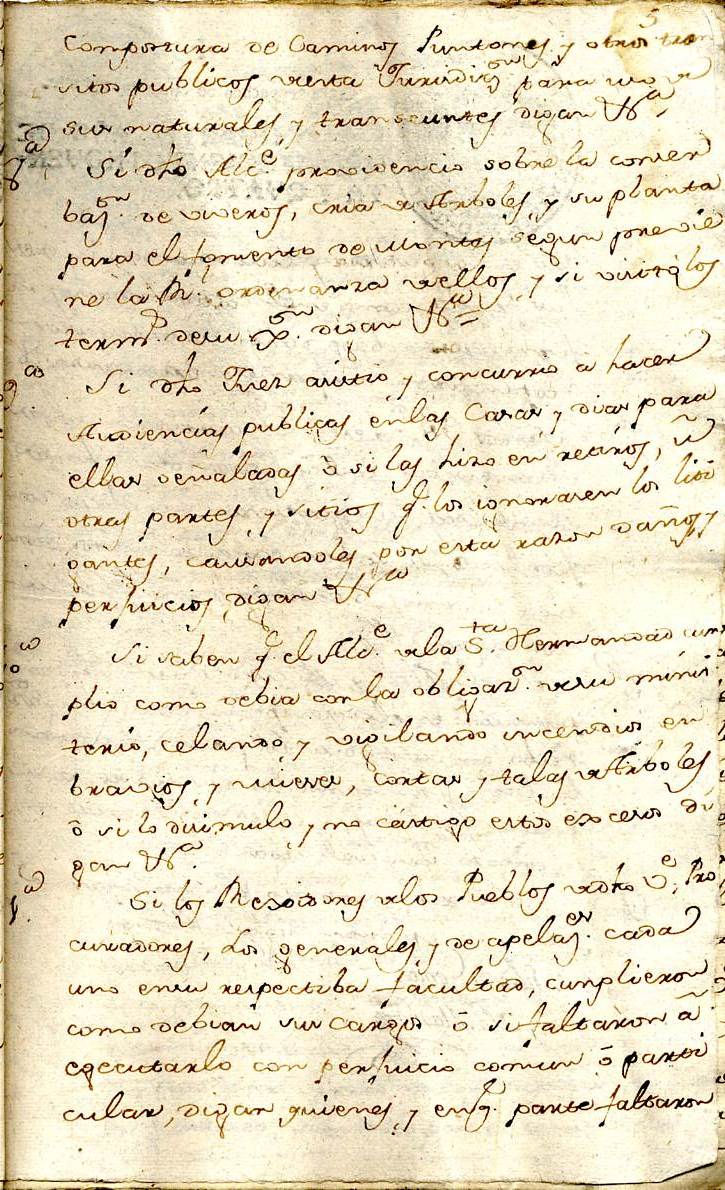 5
Compostura de Caminos Puntones y otros tran
sitos publicos de esta Jurisdizon para uso de
sus naturales, y transeuntes digan Vª
8ª Si dho Alce providencio sobre la conser
bazon de viveros, cria de Arboles, y su planta
para el fomento de Montes segun previe
ne la Rl ordenanza de ellos, y si visitó los
term.s de su Jon digan Vª
9ª Si dho Juez asistio y concurrio a hacer
Audiencias publicas en las Casas y dias para
ellas señaladas ô si las hizo en retiros, û
otras partes, y sitios q. los ignorasen los liti
gantes, causandoles por esta razon daños, y
perjuicios, digan Vª
Si saben q.e el Alce de la Sta Hermandad cum
plio como debia con la obligazon de su minis
terio, celando, y vigilando incendios en
bravios, y nieves, cortas y talas de Arboles,
ô si lo disimulo, y no castigo estos excesos di
gan Vª
Si los Rexidores de los Pueblos de dho Ve, Pro
curadores, Los generales, y de apelazes cada
uno en su respectiba facultad, cumplieron
como debian sus cargos ô si faltaron â
egecutarlo con perjuicio comun ô parti
cular, digan quienes, y en q. parte faltaron